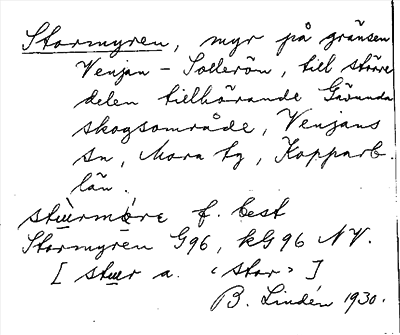 Stormyren, myr på gränsen
Venjan - Sollerön, till större
delen tillhörande Gävunda
skogsområde, Venjans
sn, Mora tg, Kopparb.
län.
f. best
Stormyren G96, kG96 NV.
[ a. ‹stor› ]
B. Lindén 1930.